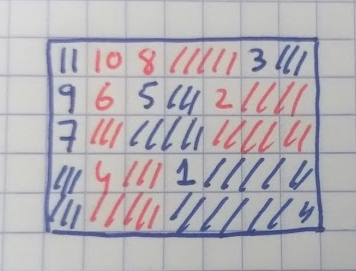 11 10 8 ///// 3 ///
9 6 5 /// 2 ////
7 /// ///// /////
/// 4 /// 1 //////
/// ///// ////////